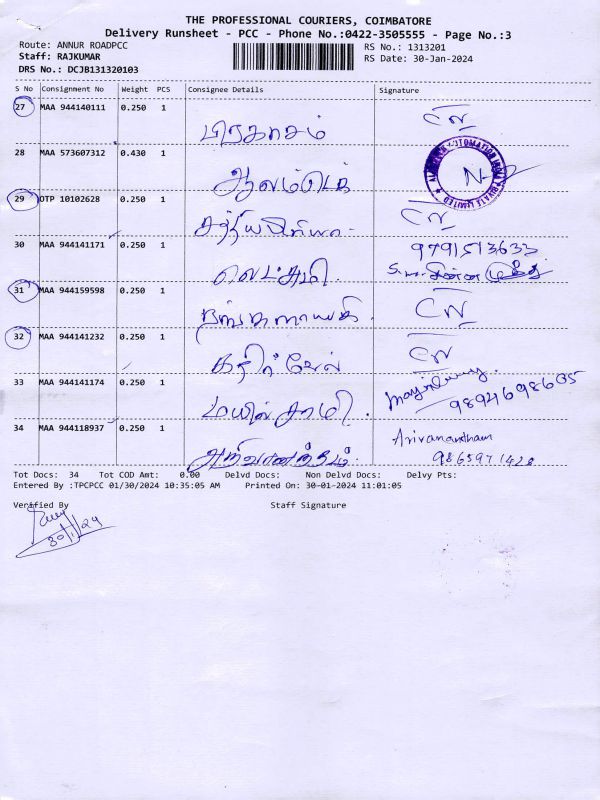 THE PROFESSIONAL COURIERS, COIMBATORE
Delivery Runsheet - PCC - Phone No.:0422-3505555 - Page No.:3
Route: ANNUR ROADPCC RS No.: 1313201
Staff: RAJKUMAR RS Date: 30-Jan-2024
DRS No.: DCJB131320103
S No Consignment No Weight PCS Consignee Details Signature
27 MAA 944140111 0.250 1
பிரகாசம்
28 MAA 573607312 0.430 1
29 OTP 10102628 0.250 1
சத்தியபிரியா
30 MAA 944141171 0.250 1 9791513633
லெட்சுமி
31 MAA 944159598 0.250 1
ரங்கநாயகி
32 MAA 944141232 0.250 1
கதிர்வேல்
33 MAA 944141174 0.250 1
மயில்சாமி 9894698635
34 MAA 944118937 0.250 1 Arivanantham
அறிவானந்தம் 9865971428
Tot Docs: 34 Tot COD Amt: 0.00 Delvd Docs: Non Delvd Docs: Delvy Pts:
Entered By :TPCPCC 01/30/2024 10:35:05 AM Printed On: 30-01-2024 11:01:05
Verified By Staff Signature
30/1/24